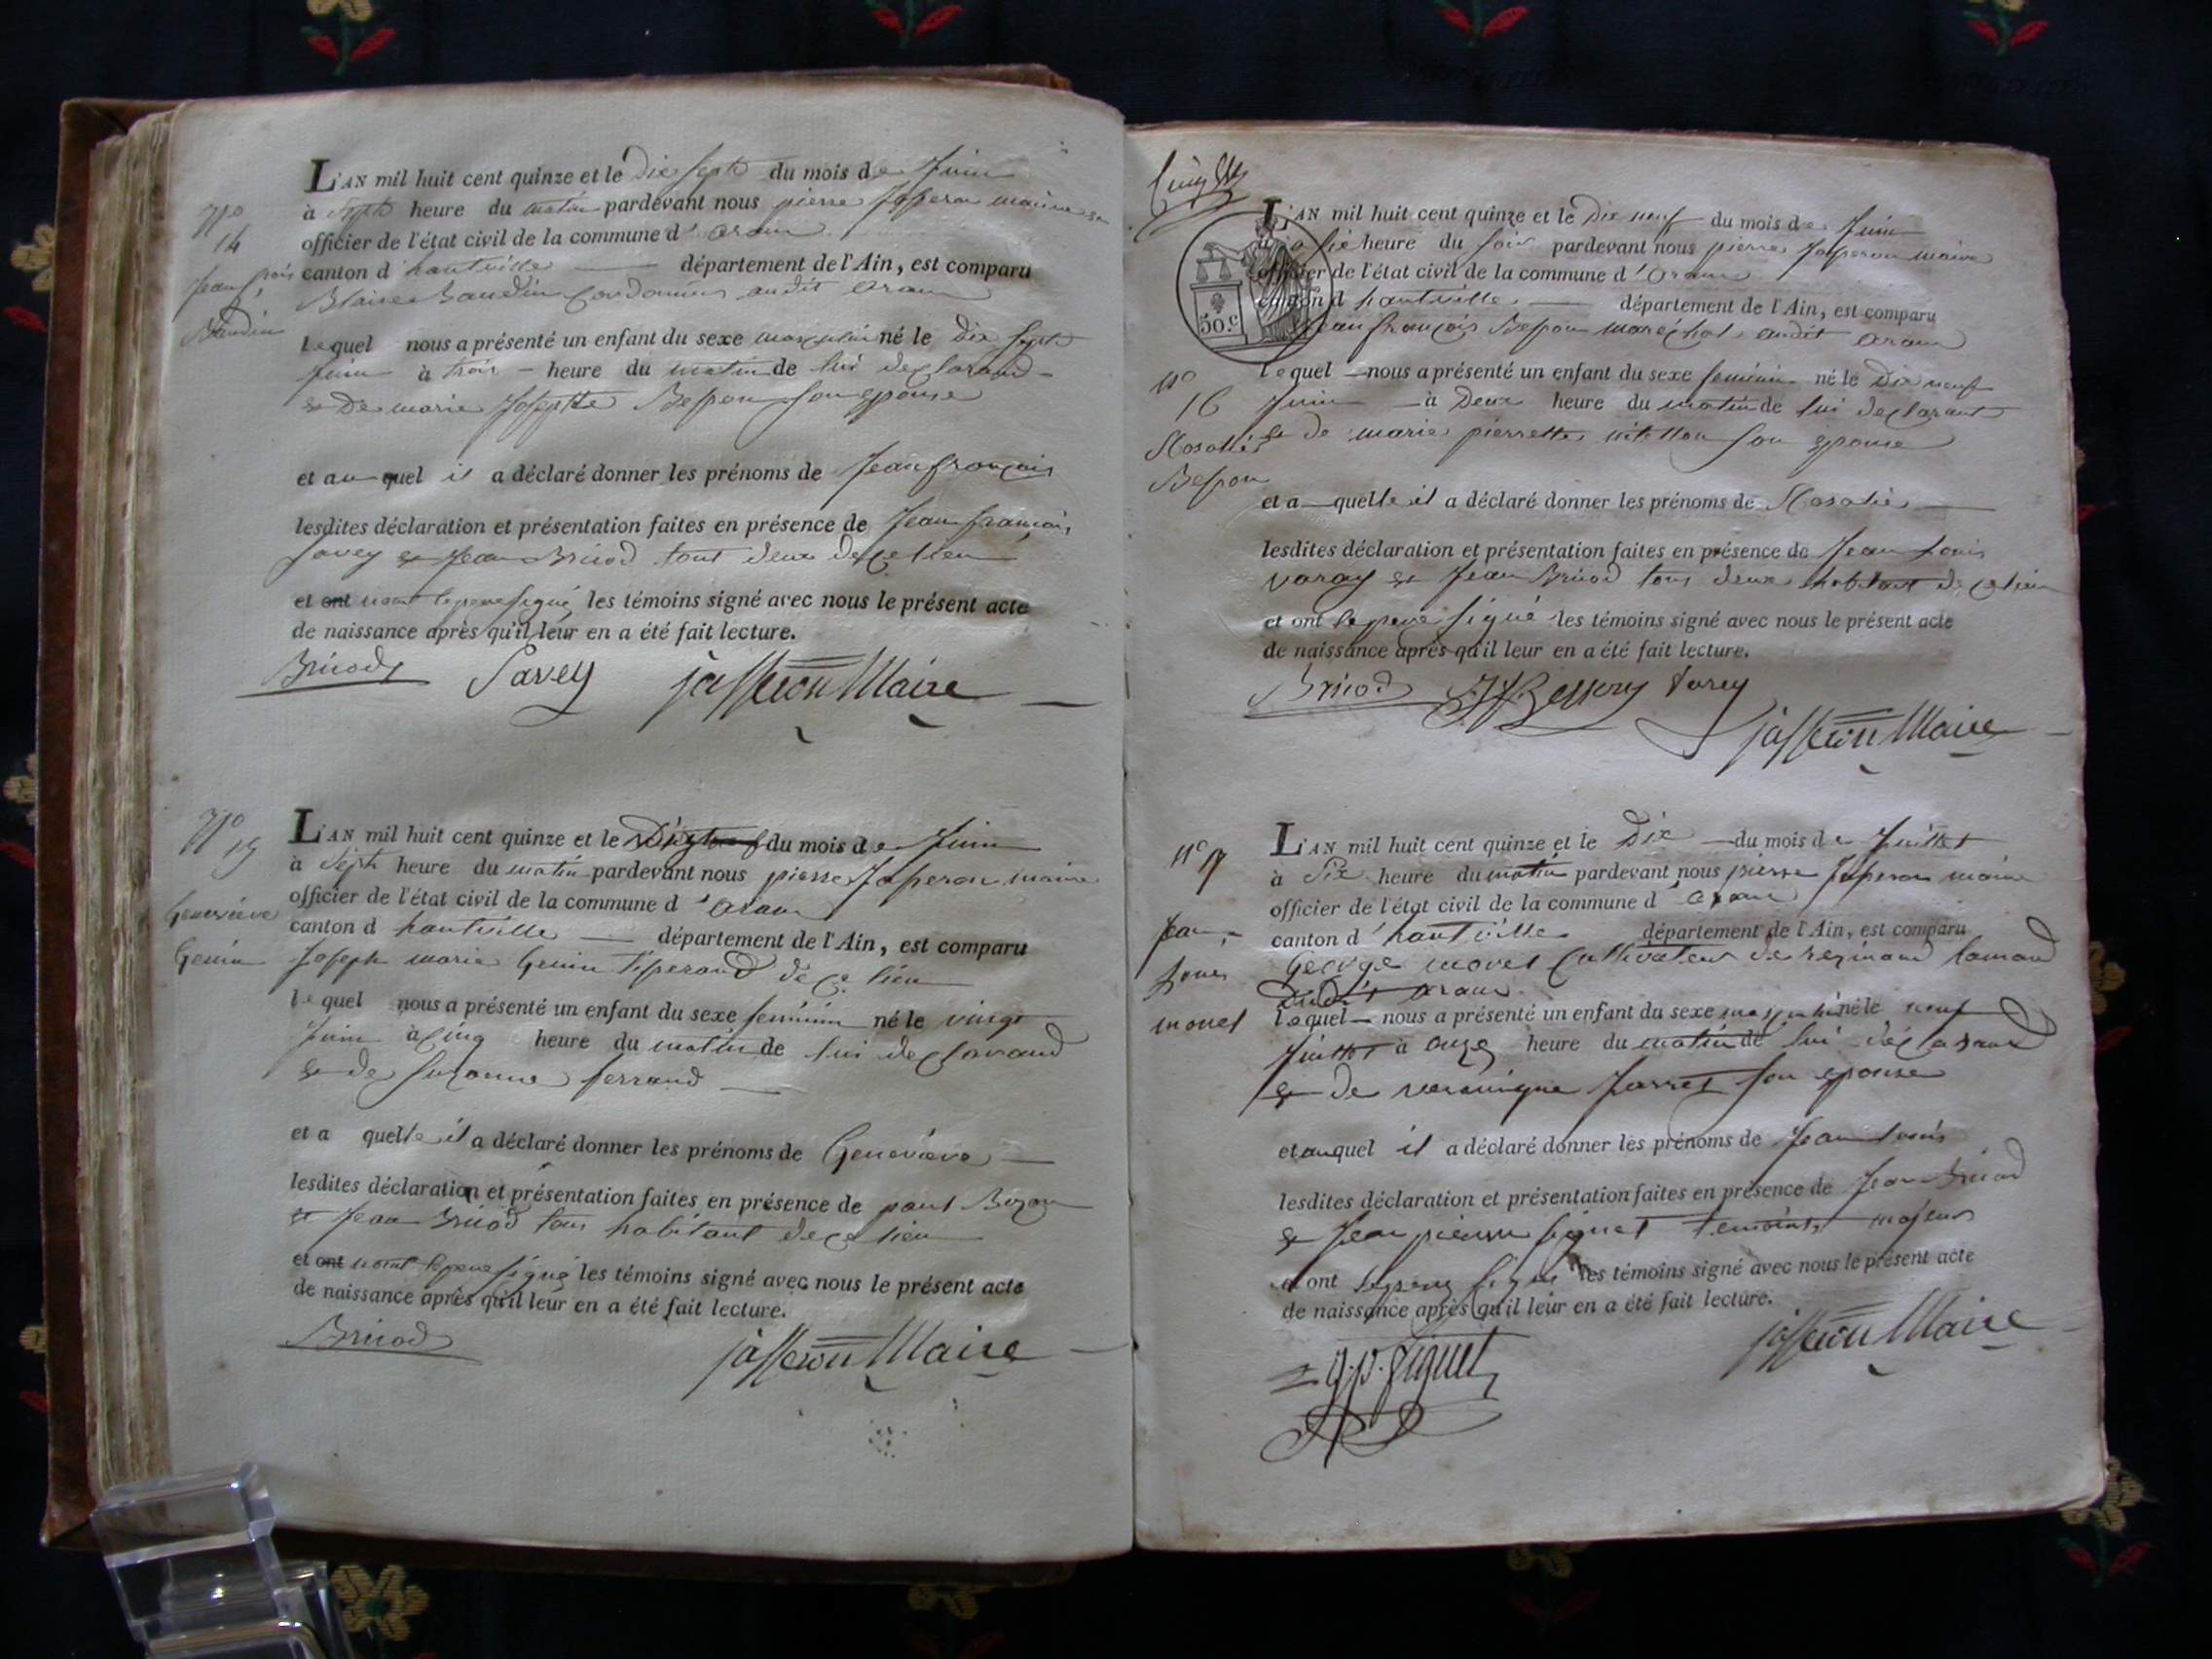 N°
14
Jean frois
Baudin
L'AN mil huit cent quinze et le Dix sept du mois de Juin
à Sept heure du matin pardevant nous pierre Jasseron maire
officier de l'état civil de la commune d'aran
canton d hauteville département de l'Ain, est comparu
Blaise Baudin Cordonnier audit aran
lequel nous a présenté un enfant du sexe masculin né le dix sept
Juin à trois heure du matin de lui declarand
& De marie Josephte Besson son epouse
et au quel il a déclaré donner les prénoms de Jean françois
lesdites déclaration et présentation faites en présence de Jean françois
Savey & Jean Bricod tout deux de ce lieu
et ont non le pere signé les témoins signé avec nous le présent acte
de naissance après qu'il leur en a été fait lecture.
Bricod Savey jasseron Maire
N°
15
Genevieve
Genin
L'AN mil huit cent quinze et le du mois de Juin
à Sept heure du matin pardevant nous pierre Jasseron maire
officier de l'état civil de la commune d'aran
canton d hauteville département de l'Ain, est comparu
Joseph marie Genin tisserand de ce lieu
lequel nous a présenté un enfant du sexe feminin né le vingt
Juin à Cinq heure du matin de lui declarand
& de Suzanne ferrand
et a quelle il a déclaré donner les prénoms de Genevieve
lesdites déclaration et présentation faites en présence de paul Bozon
& Jean Bricod tous habitant de ce lieu
et ont non le pere signé les témoins signé avec nous le présent acte
de naissance après qu'il leur en a été fait lecture.
Bricod jasseron Maire
50.c
n°
16
Rosalie
Besson
L'AN mil huit cent quinze et le Dix neuf du mois de Juin
heure du soir pardevant nous pierre Jasseron maire
officier de l'état civil de la commune d'aran
canton d hauteville département de l'Ain, est comparu
Jean françois Besson marechal audit aran
lequel nous a présenté un enfant du sexe feminin né le Dix neuf
Juin à Deux heure du matin de lui declarant
& de marie pierrette son epouse
et a quelle il a déclaré donner les prénoms de Rosalie
lesdites déclaration et présentation faites en présence de Jean Louis
varay & Jean Bricod tous deux habitant de ce lieu
et ont le pere signé les témoins signé avec nous le présent acte
de naissance après qu'il leur en a été fait lecture.
Bricod Besson Varey
jasseron Maire
n° 17
Jean
Louis
morel
L'AN mil huit cent quinze et le Dix du mois de Juillet
à Six heure du matin pardevant nous pierre Jasseron maire
officier de l'état civil de la commune d'aran
canton d'hauteville département de l'Ain, est comparu
George morel Cultivateur de
audit aran
lequel nous a présenté un enfant du sexe masculin né le neuf
Juillet à onze heure du matin de lui déclarand
& de veronique Jarret son epouse
et auquel il a déclaré donner les prénoms de Jean Louis
lesdites déclaration et présentation faites en présence de Jean Bricod
& Jean pierre figuet temoints majeur
et ont le pere signé les témoins signé avec nous le présent acte
de naissance après qu'il leur en a été fait lecture.
j.p. figuet jasseron Maire